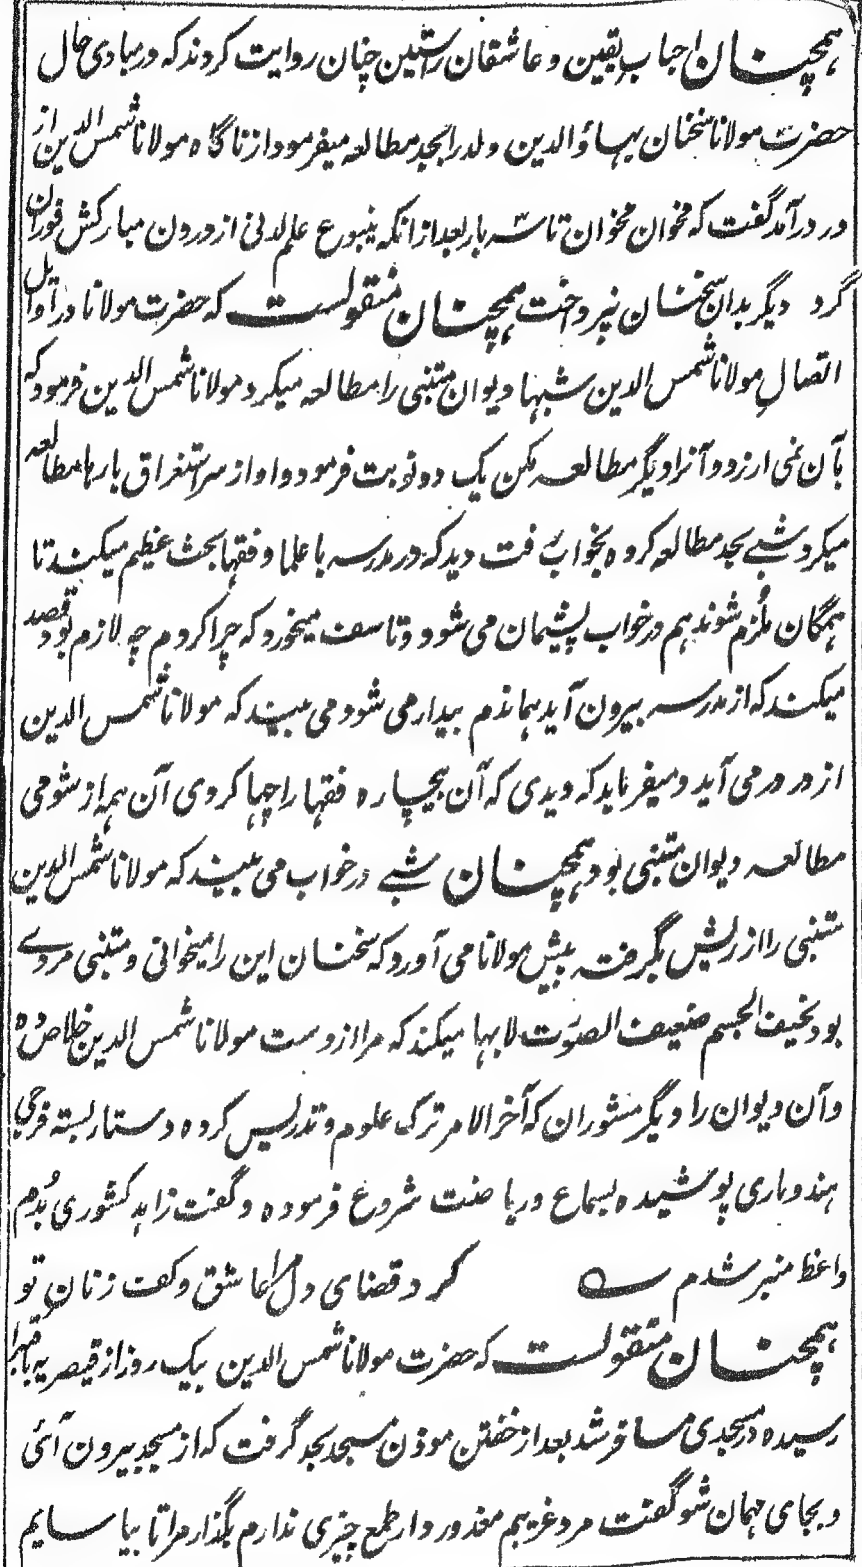 همچنان احباب یقین و عاشقان راستین چنان روایت کردند که در مبادی حال
حضرت مولانا سخنان بهاؤ الدین ولد را بجد مطالعه میفرمود از ناگاه مولانا شمس الدین از
در درآمد گفت که مخوان مخوان تا سه بار بعد ازانکه ینبوع علم لدنی از درون مبارکش فوران
کرد دیگر بدان سخنان نپرداخت همچنان منقولست که حضرت مولانا در اوایل
اتصالِ مولانا شمس الدین شبها دیوان متنبی را مطالعه میکرد مولانا شمس الدین فرمود که
بآن نمی ارزد و آنرا دیگر مطالعه مکن یک دو نوبت فرمود و او از سر استغراق بارها مطالعه
میکرد شبے بجد مطالعه کرده بخواب رفت دید که در مدرسه با علما و فقها بحث عظیم میکند تا
همگان ملزم شوند هم در خواب پشیمان می شود و تاسف میخورد که چرا کردم چه لازم بود قصد
میکند که از مدرسه بیرون آید هماندم بیدار می شود می بیند که مولانا شمس الدین
از در در می آید و میفرماید که دیدی که آن بیچاره فقها را چها کردی آن همه از شومی
مطالعه دیوان متنبی بود همچنان شبے در خواب می بیند که مولانا شمس الدین
متنبی را از ریش بگرفته پیش مولانا می آورد که سخنان این را میخوانی و متنبی مردے
بود نحیف الجسم ضعیف الصوت لابها میکند که مرا از دست مولانا شمس الدین خلاص ده
و آن دیوان را دیگر مشوران که آخر الامر ترک علوم و تدریس کرده دستار بسته فرجی
هندوباری پوشیده بسماع و ریاضت شروع فرموده و گفت زاهد کشوری بُدم
واعظ منبر شدم کرد قضای دل مرا عاشق و کف زنانِ تو
همچنان منقولست که حضرت مولانا شمس الدین یک روز از قیصریه باقسرا
رسیده در مسجدی مسافر شد بعد از خفتن موذن مسجد بجد گرفت که از مسجد بیرون آئی
و بجای مهمان شو گفت مرد غریبم معذور دار طمع چیزی ندارم بگذار مرا تا بیاسایم